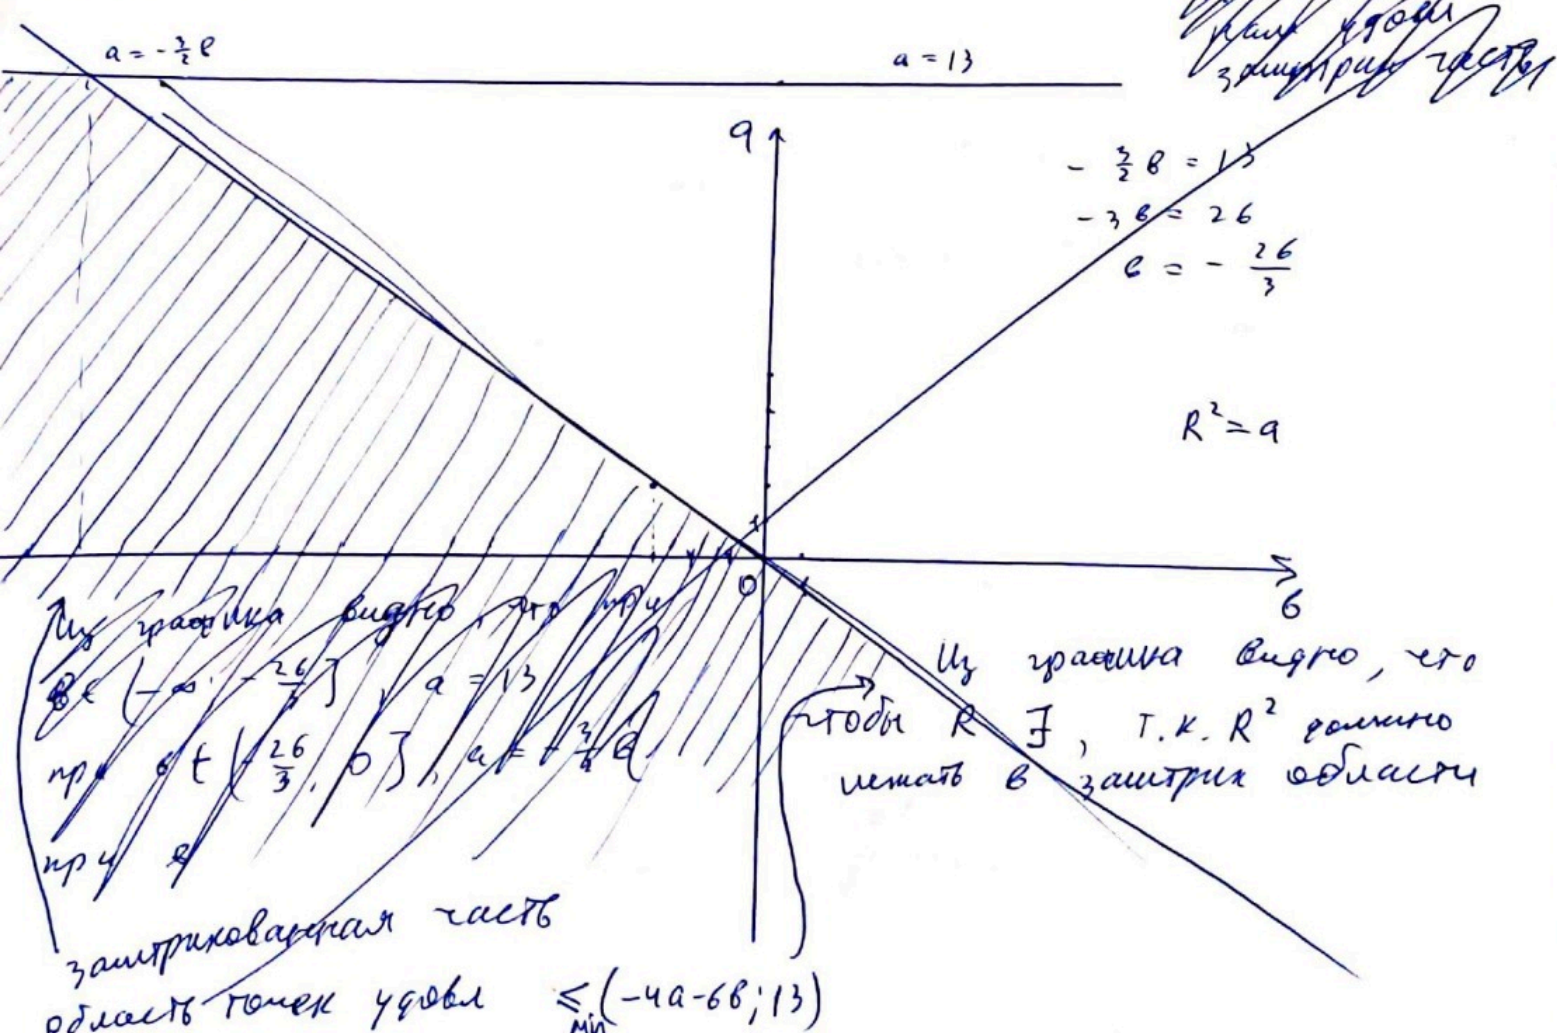 a = - 3/2 в
a = 13
удовл
заштрих часть
a
- 3/2 в = 13
- 3 в = 26
в = - 26/3
R² = a
1
0
в
Из графика видно, что при
в ∈ (-∞; - 26/3], a = 13
при в ∈ (- 26/3, 0], a = - 3/2 в
при в
Из графика видно, что
чтобы R ∃, т.к. R² должно
лежать в заштрих области
заштрихованная часть
область точек удовл ≤ min (-4a-6в; 13)